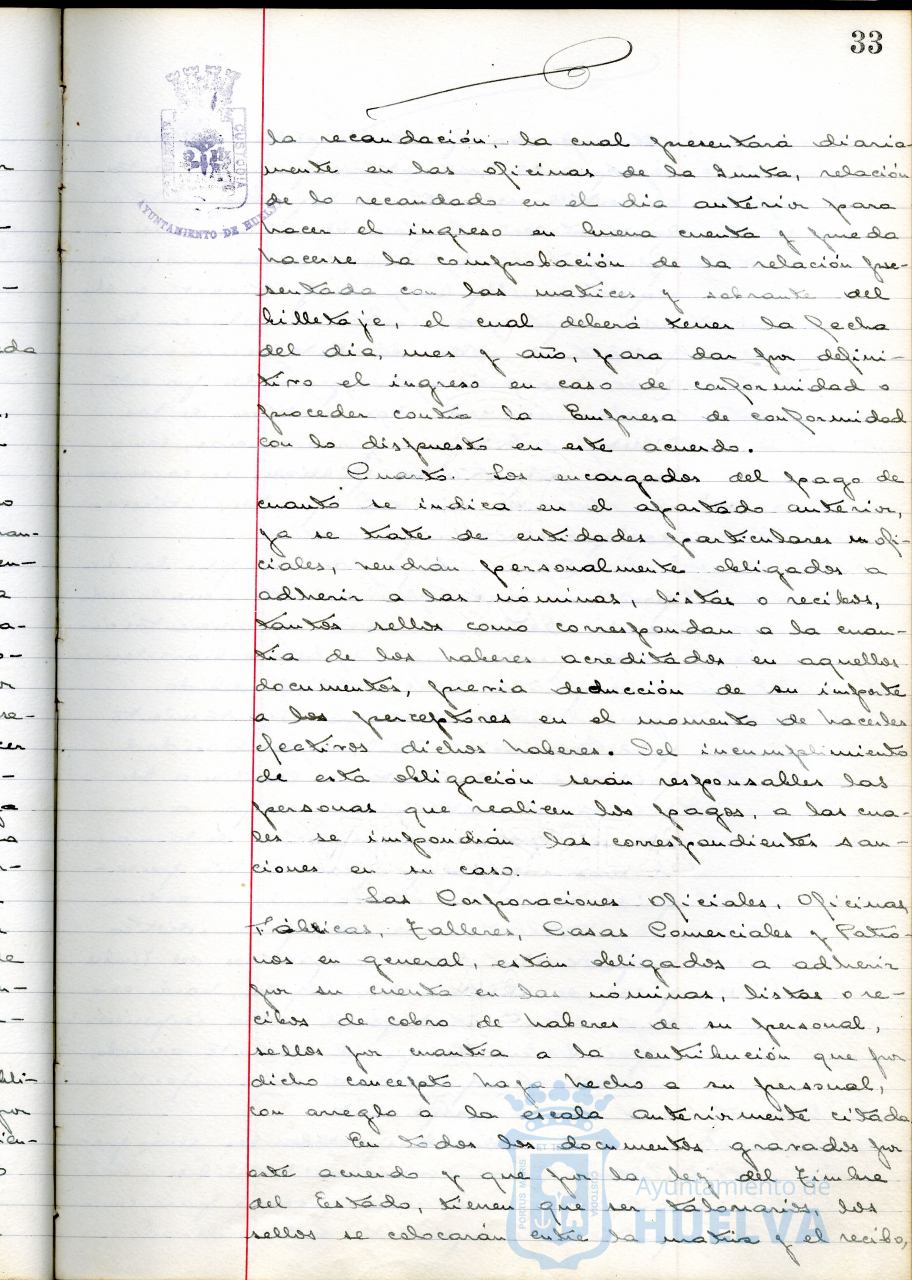 33
la recaudación, la cual presentará diaria-
mente en las oficinas de la Junta, relación
de lo recaudado en el dia anterior para
hacer el ingreso en buena cuenta y pueda
hacerse la comprobación de la relación pre-
sentada con las matrices y sobrante del
billetaje, el cual deberá tener la fecha
del dia, mes y año, para dar por defini-
tivo el ingreso en caso de conformidad o
proceder contra la Empresa de conformidad
con lo dispuesto en este acuerdo.
Cuarto. Los encargados del pago de
cuanto se indica en el apartado anterior,
ya se trate de entidades particulares u ofi-
ciales, vendrán personalmente obligados a
adherir a las nóminas, listas o recibos,
tantos sellos como correspondan a la cuan-
tía de los haberes acreditados en aquellos
documentos, previa deducción de su importe
a los perceptores en el momento de hacerles
efectivos dichos haberes. Del incumplimiento
de esta obligación serán responsables las
personas que realicen los pagos, a las cua-
les se impondrán las correspondientes san-
ciones en su caso.
Las Corporaciones oficiales, Oficinas
Fábricas, Talleres, Casas Comerciales y Patro-
nos en general, están obligados a adherir
por su cuenta en las nóminas, listas o re-
cibos de cobro de haberes de su personal,
sellos por cuantía a la contribución que por
dicho concepto haya hecho a su personal,
con arreglo a la escala anteriormente citada
En todos los documentos gravados por
este acuerdo y que por la ley del Timbre
del Estado, tienen que ser talonarios, los
sellos se colocarán entre la matriz y el recibo,
AYUNTAMIENTO DE HUELVA
CUSTODIA
PORTUS MARIS
ET TERRAE
CUSTODIA
Ayuntamiento de
HUELVA